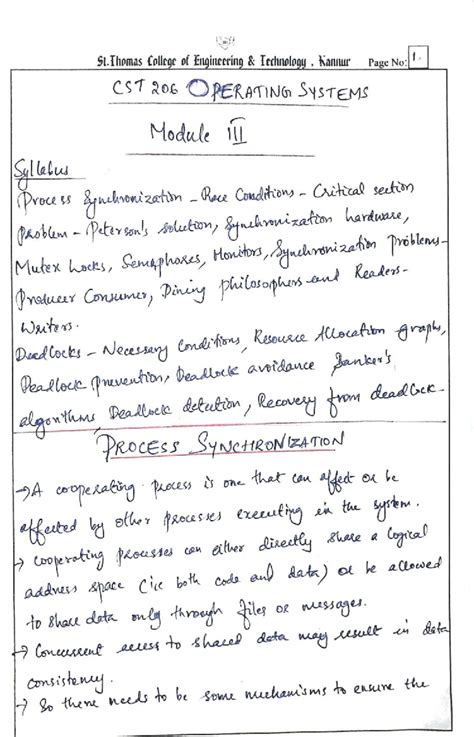 St.Thomas College of Engineering & Technology , Kannur Page No: 1.
CST 206 OPERATING SYSTEMS
Module III
Syllabus
Process Synchronization - Race Conditions - Critical section
Problem - Peterson's solution, Synchronization hardware,
Mutex Locks, Semaphores, Monitors, Synchronization Problems -
Producer Consumer, Dining Philosophers and Readers-
Writers.
Deadlocks - Necessary Conditions, Resource Allocation graphs,
Deadlock prevention, Deadlock avoidance Banker's
algorithms, Deadlock detection, Recovery from deadlock.
PROCESS SYNCHRONIZATION
→ A cooperating process is one that can affect or be
affected by other processes executing in the system.
→ cooperating processes can either directly share a logical
address space (ie both code and data) or be allowed
to share data only through files or messages.
→ Concurrent access to shared data may result in data
consistency.
→ So there needs to be some mechanisms to ensure the